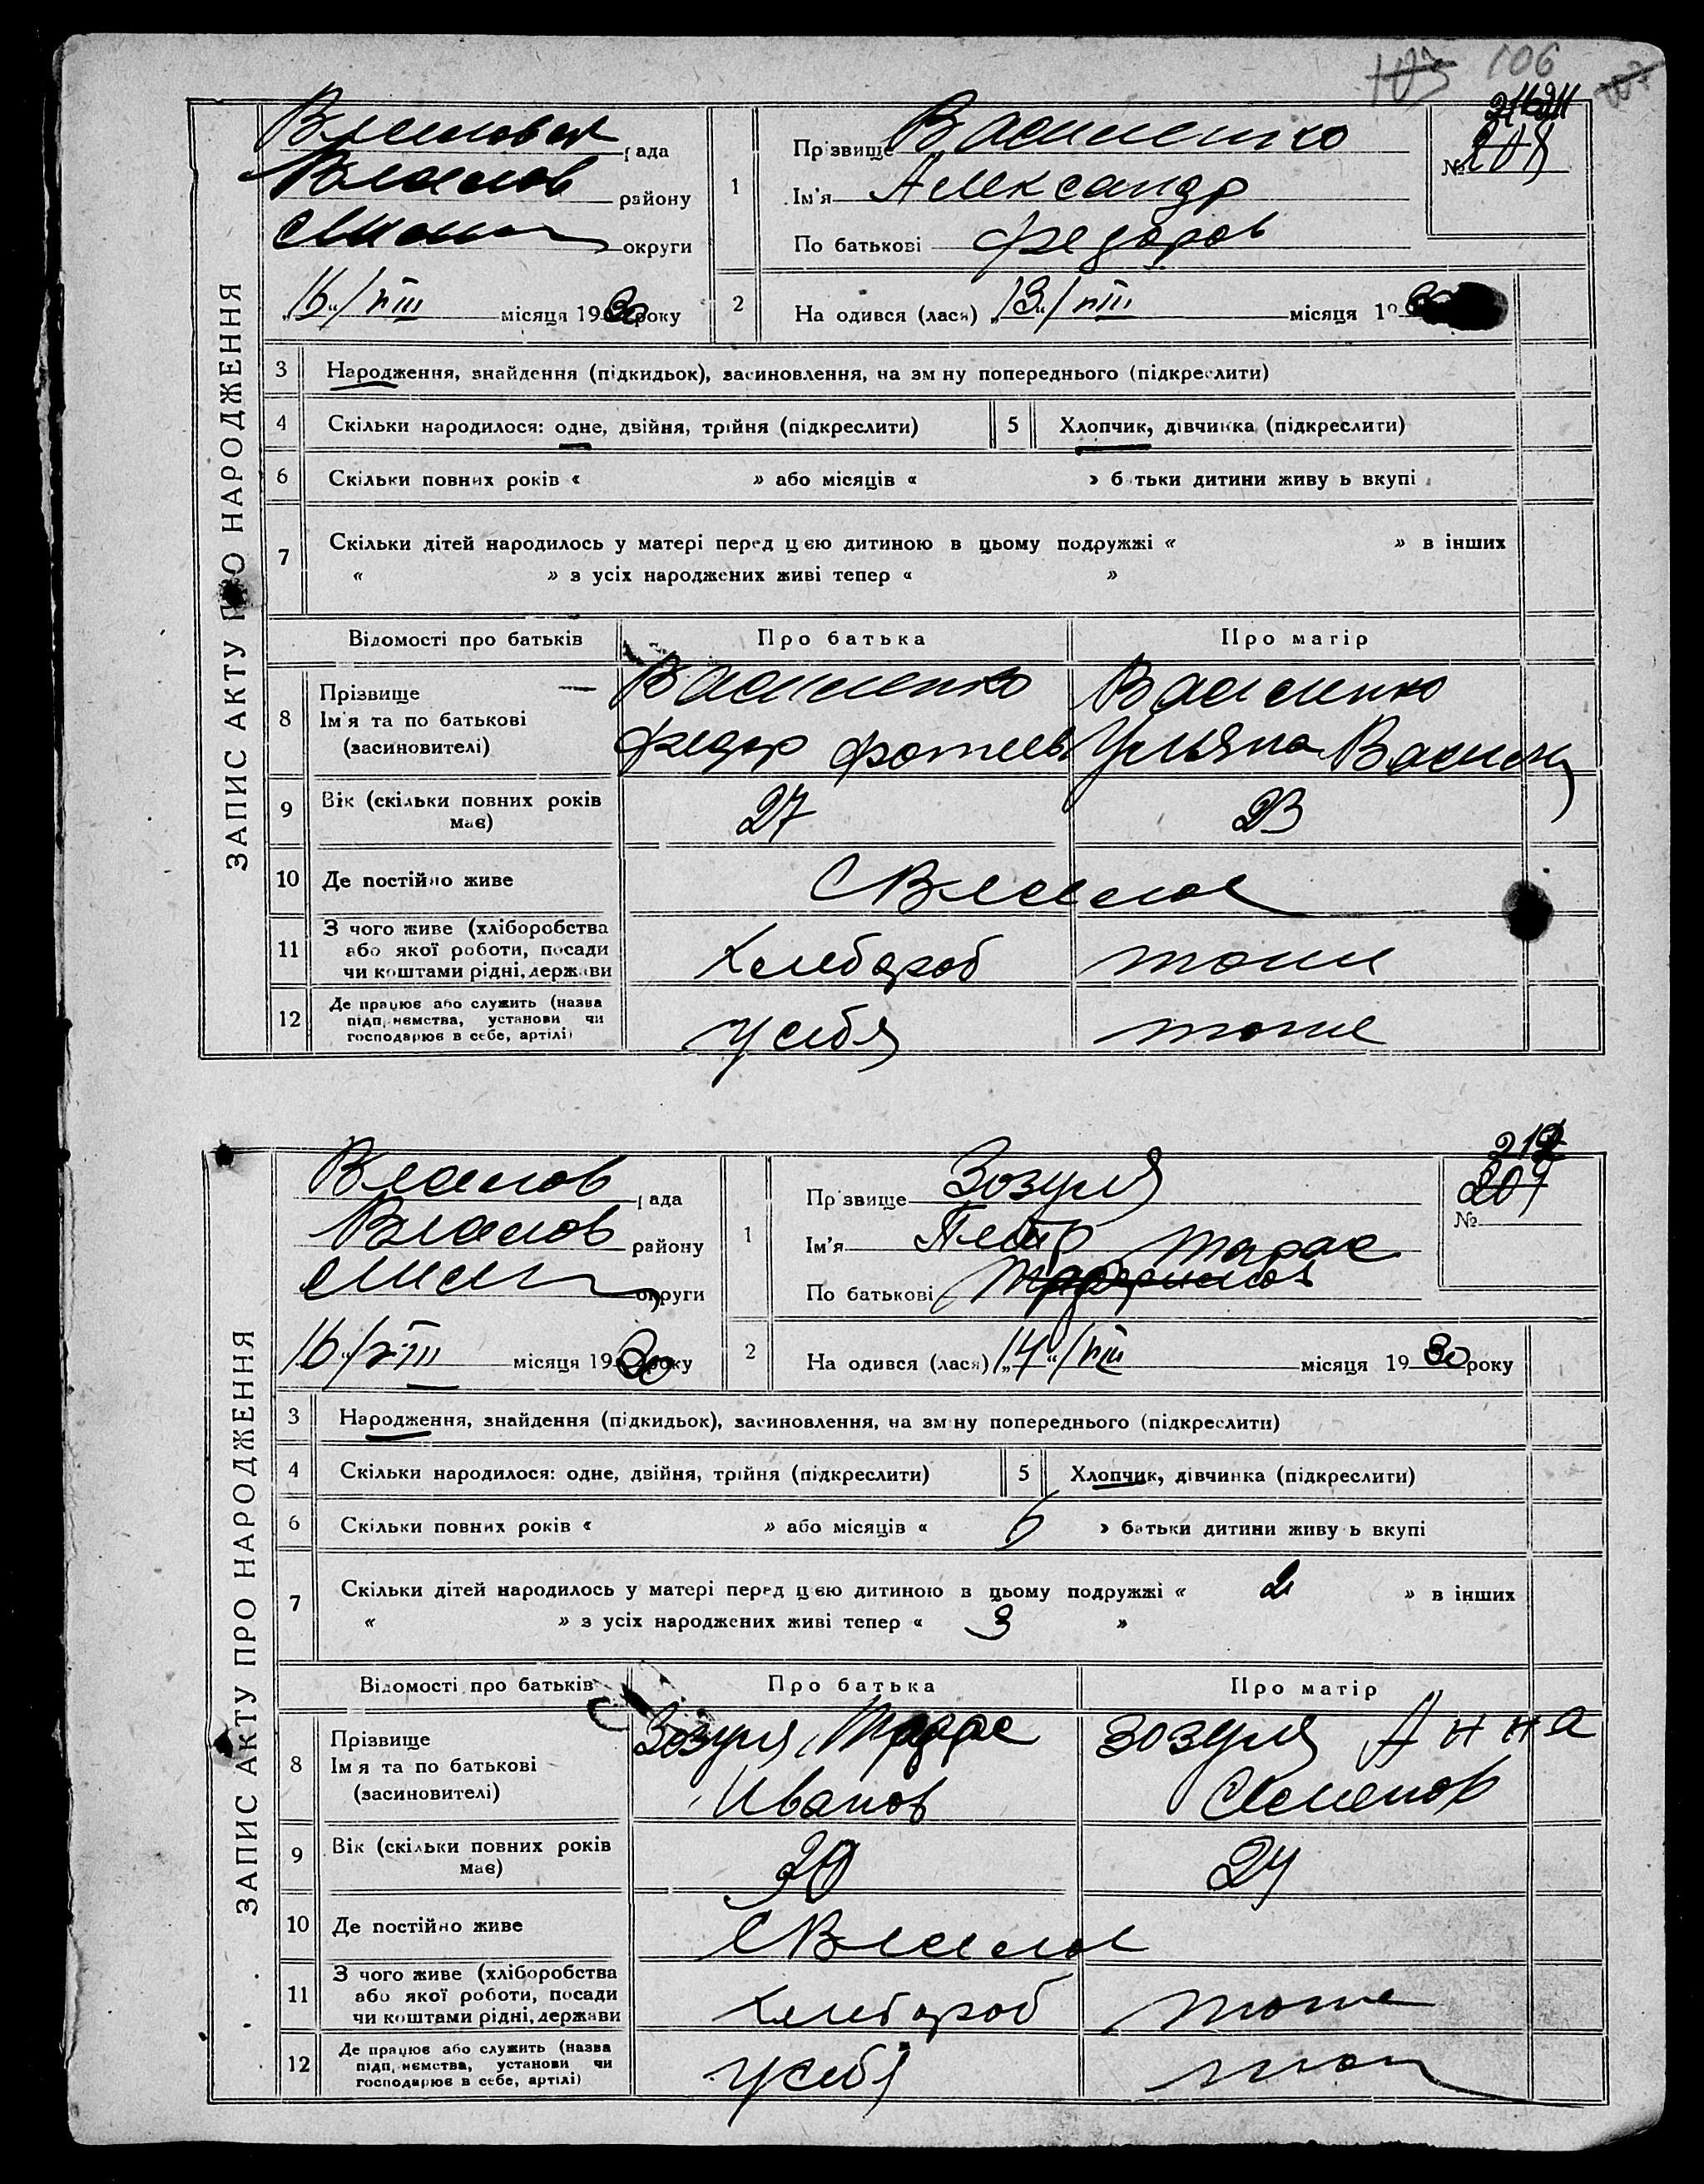 106
ЗАПИС АКТУ ПРО НАРОДЖЕННЯ
рада
Власов району
округи
„16“/VIII місяця 1930 року
1
Прізвище Василенко
Ім'я Александр
По батькові Федоров
№
211
2
На одився (лася) „13“/VIII місяця 19
3 Народження, знайдення (підкидьок), засиновлення, на зм ну попереднього (підкреслити)
4 Скільки народилося: одне, двійня, трійня (підкреслити) 5 Хлопчик, дівчинка (підкреслити)
6 Скільки повних років « » або місяців « » б тьки дитини живу ь вкупі
7 Скільки дітей народилось у матері перед цією дитиною в цьому подружжі « » в інших
« » з усіх народжених живі тепер « »
Відомості про батьків Про батька Про матір
8 Прізвище
Ім'я та по батькові
(засиновителі)
Василенко
Федор Фотиев
Василенко
Ульяна Васил
9 Вік (скільки повних років має) 27 23
10 Де постійно живе С Власов
11 З чого живе (хліборобства
або якої роботи, посади
чи коштами рідні, держави
Хлебороб тоже
12 Де працює або служить (назва
підп, иємства, установи чи
господарює в себе, артілі)
У себя тоже
ЗАПИС АКТУ ПРО НАРОДЖЕННЯ
Власов рада
Власов району
округи
16/VIII місяця 1930 року
1
Прізвище Зозуля
Ім'я Петр
Тарас
По батькові
212
№
2
На одився (лася) „14“/VIII місяця 1930 року
3 Народження, знайдення (підкидьок), засиновлення, на зм ну попереднього (підкреслити)
4 Скільки народилося: одне, двійня, трійня (підкреслити) 5 Хлопчик, дівчинка (підкреслити)
6 Скільки повних років « » або місяців « 6 » батьки дитини живу ь вкупі
7 Скільки дітей народилось у матері перед цією дитиною в цьому подружжі « 2 » в інших
« » з усіх народжених живі тепер « 3 »
Відомості про батьків Про батька Про матір
8 Прізвище
Ім'я та по батькові
(засиновителі)
Зозуля Тарас
Иванов
Зозуля Анна
Семенов
9 Вік (скільки повних років має) 24
10 Де постійно живе С Власов
11 З чого живе (хліборобства
або якої роботи, посади
чи коштами рідні, держави
Хлебороб тоже
12 Де працює або служить (назва
підп, иємства, установи чи
господарює в себе, артілі)
У себя тож